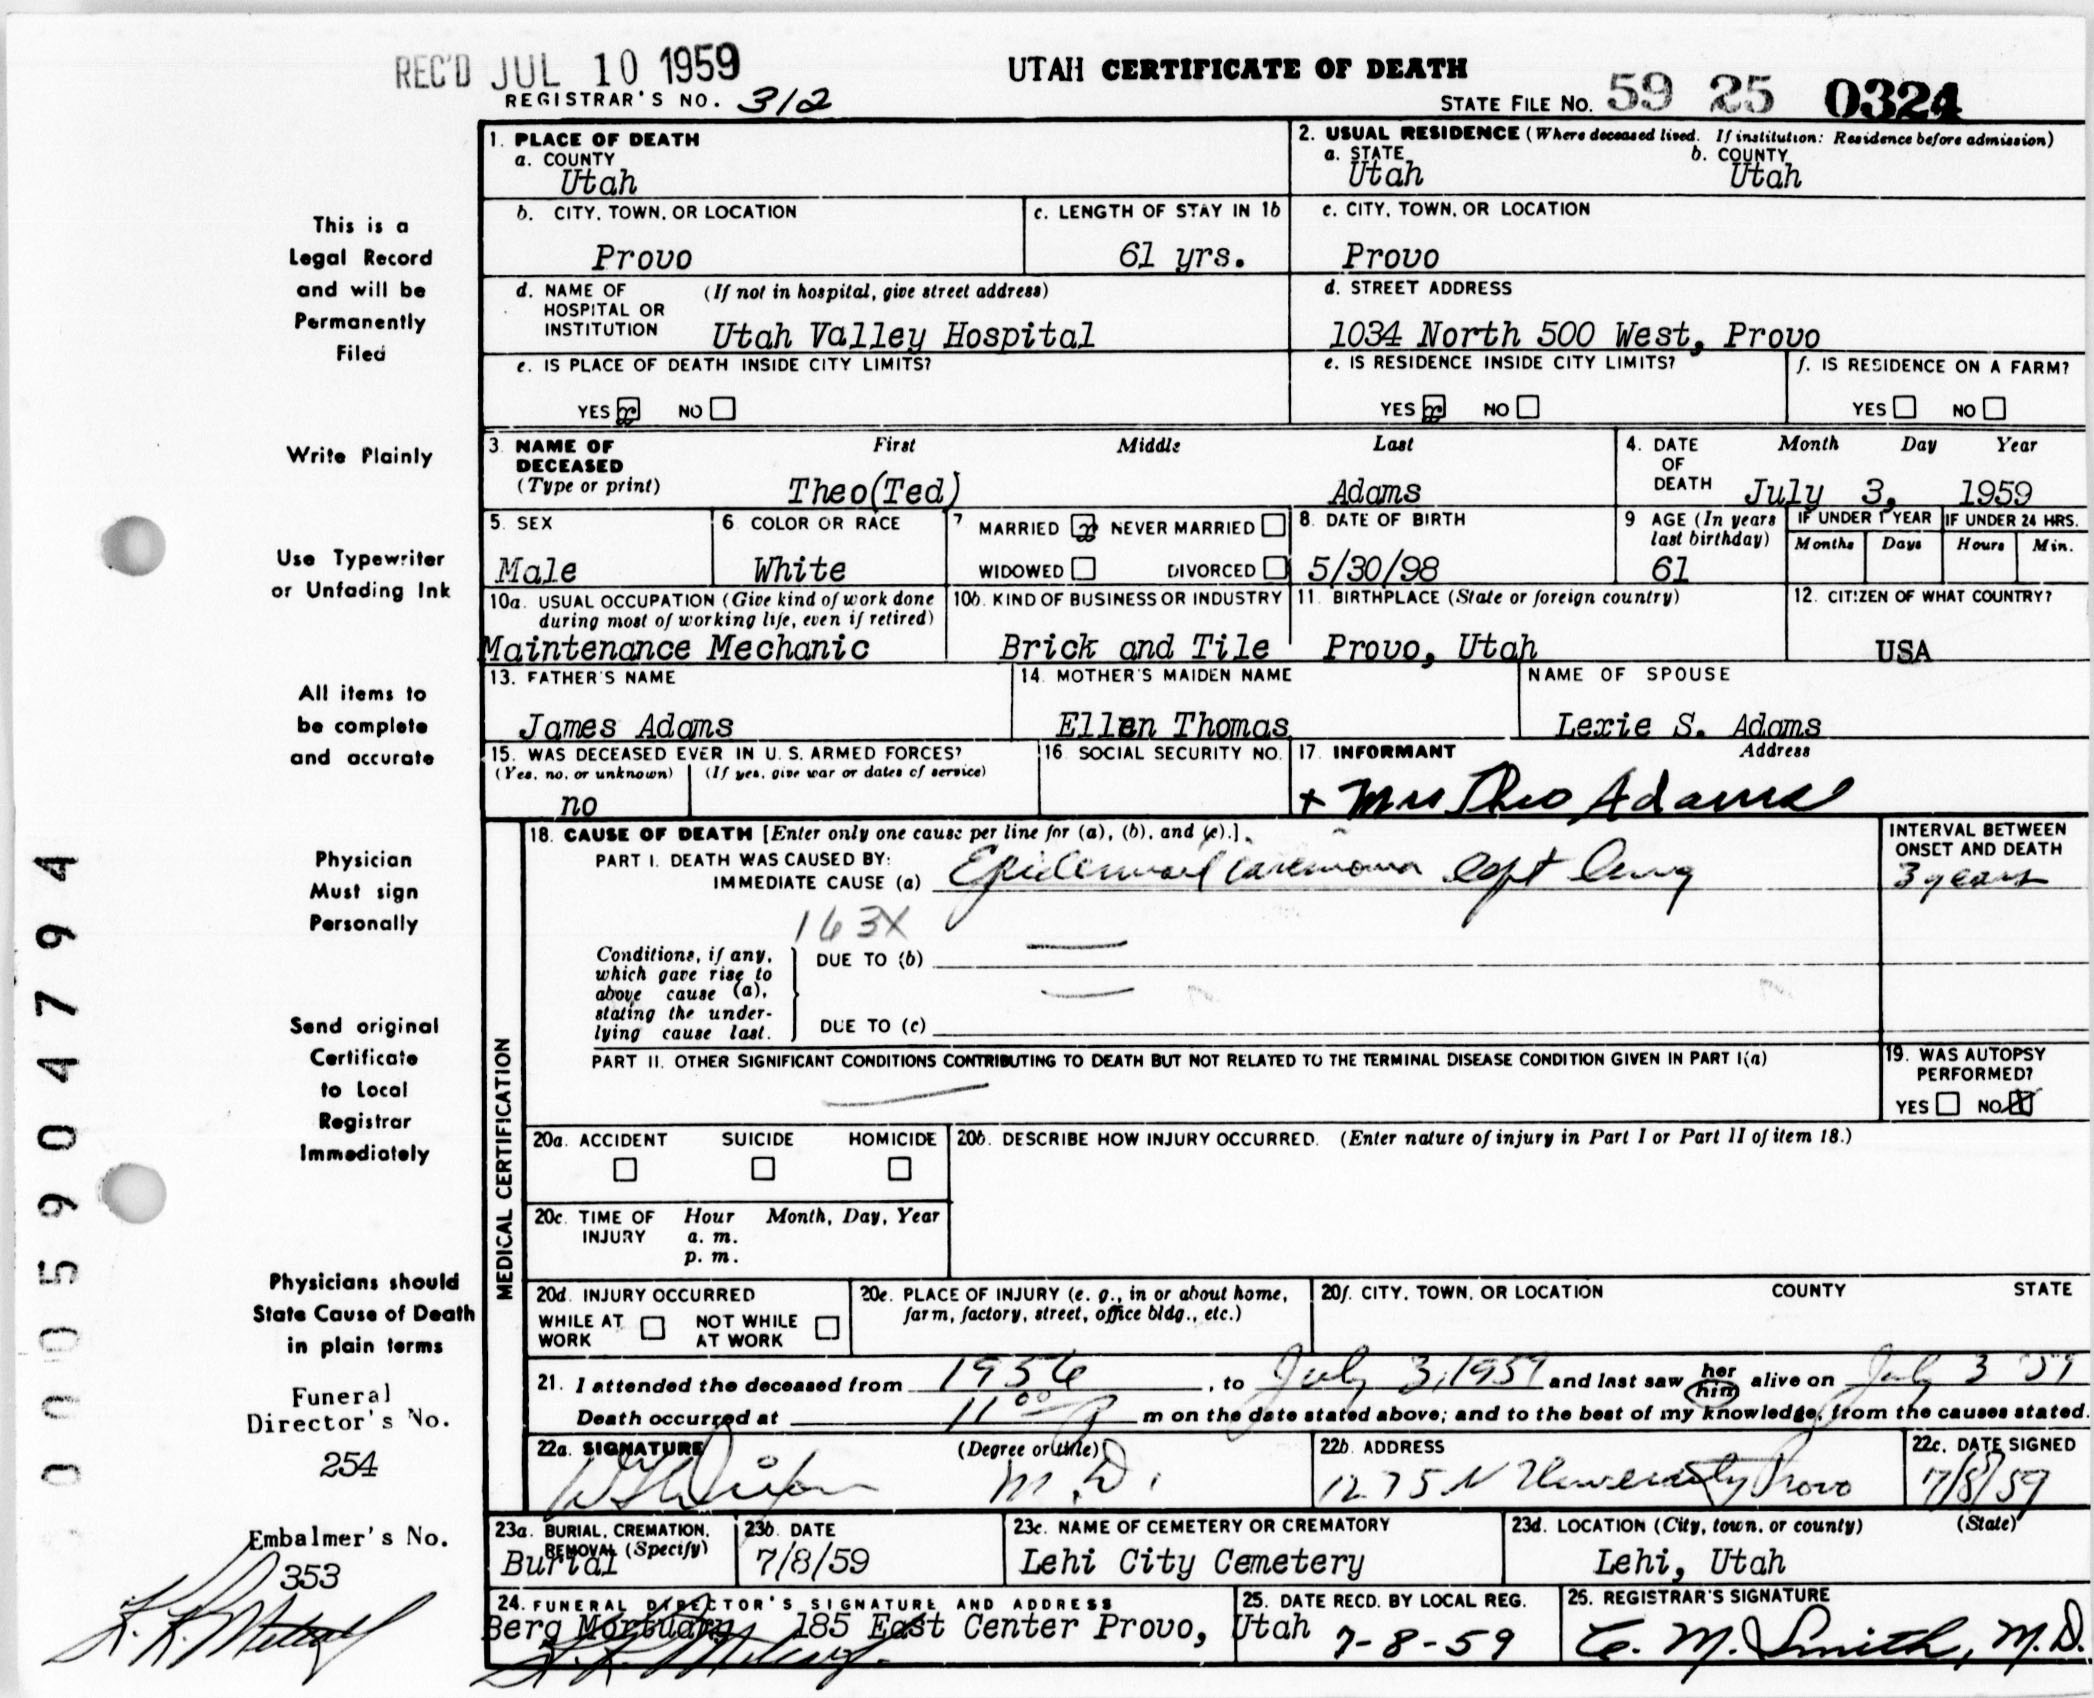 REC'D JUL 10 1959
REGISTRAR'S NO. 312
UTAH CERTIFICATE OF DEATH
STATE FILE NO. 59 25 0324
1. PLACE OF DEATH
a. COUNTY
Utah
2. USUAL RESIDENCE (Where deceased lived. If institution: Residence before admission)
a. STATE b. COUNTY
Utah Utah
b. CITY, TOWN, OR LOCATION
Provo
c. LENGTH OF STAY IN 1b
61 yrs.
c. CITY, TOWN, OR LOCATION
Provo
d. NAME OF (If not in hospital, give street address)
HOSPITAL OR
INSTITUTION Utah Valley Hospital
d. STREET ADDRESS
1034 North 500 West, Provo
e. IS PLACE OF DEATH INSIDE CITY LIMITS?
YES x NO
e. IS RESIDENCE INSIDE CITY LIMITS?
YES x NO
f. IS RESIDENCE ON A FARM?
YES NO
3. NAME OF First Middle Last
DECEASED
(Type or print) Theo(Ted) Adams
4. DATE Month Day Year
OF
DEATH July 3, 1959
5. SEX
Male
6. COLOR OR RACE
White
7 MARRIED x NEVER MARRIED
WIDOWED DIVORCED
8. DATE OF BIRTH
5/30/98
9 AGE (In years
last birthday)
61
IF UNDER 1 YEAR
Months Days
IF UNDER 24 HRS.
Hours Min.
10a. USUAL OCCUPATION (Give kind of work done
during most of working life, even if retired)
Maintenance Mechanic
10b. KIND OF BUSINESS OR INDUSTRY
Brick and Tile
11. BIRTHPLACE (State or foreign country)
Provo, Utah
12. CITIZEN OF WHAT COUNTRY?
USA
13. FATHER'S NAME
James Adams
14. MOTHER'S MAIDEN NAME
Ellen Thomas
NAME OF SPOUSE
Lexie S. Adams
15. WAS DECEASED EVER IN U. S. ARMED FORCES?
(Yes, no, or unknown) (If yes, give war or dates of service)
no
16. SOCIAL SECURITY NO.
17. INFORMANT Address
+ Mrs Theo Adams
MEDICAL CERTIFICATION
18. CAUSE OF DEATH [Enter only one cause per line for (a), (b), and (c).]
PART I. DEATH WAS CAUSED BY:
IMMEDIATE CAUSE (a) Epidermoid carcinoma left lung
INTERVAL BETWEEN
ONSET AND DEATH
3 years
163X
Conditions, if any,
which gave rise to
above cause (a),
stating the under-
lying cause last.
DUE TO (b)
DUE TO (c)
PART II. OTHER SIGNIFICANT CONDITIONS CONTRIBUTING TO DEATH BUT NOT RELATED TO THE TERMINAL DISEASE CONDITION GIVEN IN PART I(a)
19. WAS AUTOPSY
PERFORMED?
YES NO X
20a. ACCIDENT SUICIDE HOMICIDE
20b. DESCRIBE HOW INJURY OCCURRED. (Enter nature of injury in Part I or Part II of item 18.)
20c. TIME OF Hour Month, Day, Year
INJURY a. m.
p. m.
20d. INJURY OCCURRED
WHILE AT NOT WHILE
WORK AT WORK
20e. PLACE OF INJURY (e. g., in or about home,
farm, factory, street, office bldg., etc.)
20f. CITY, TOWN, OR LOCATION COUNTY STATE
21. I attended the deceased from 1956, to July 3, 1959 and last saw her him alive on July 3 '59
Death occurred at 11 00 P m on the date stated above; and to the best of my knowledge, from the causes stated.
22a. SIGNATURE (Degree or title)
M.D.
22b. ADDRESS
1275 N University Provo
22c. DATE SIGNED
7/8/59
23a. BURIAL, CREMATION,
REMOVAL (Specify)
Burial
23b. DATE
7/8/59
23c. NAME OF CEMETERY OR CREMATORY
Lehi City Cemetery
23d. LOCATION (City, town, or county) (State)
Lehi, Utah
24. FUNERAL DIRECTOR'S SIGNATURE AND ADDRESS
Berg Mortuary 185 East Center Provo, Utah
25. DATE RECD. BY LOCAL REG.
7-8-59
26. REGISTRAR'S SIGNATURE
C. M. Smith, M.D.
This is a
Legal Record
and will be
Permanently
Filed
Write Plainly
Use Typewriter
or Unfading Ink
All items to
be complete
and accurate
Physician
Must sign
Personally
Send original
Certificate
to Local
Registrar
Immediately
Physicians should
State Cause of Death
in plain terms
Funeral
Director's No.
254
Embalmer's No.
353
0005904794